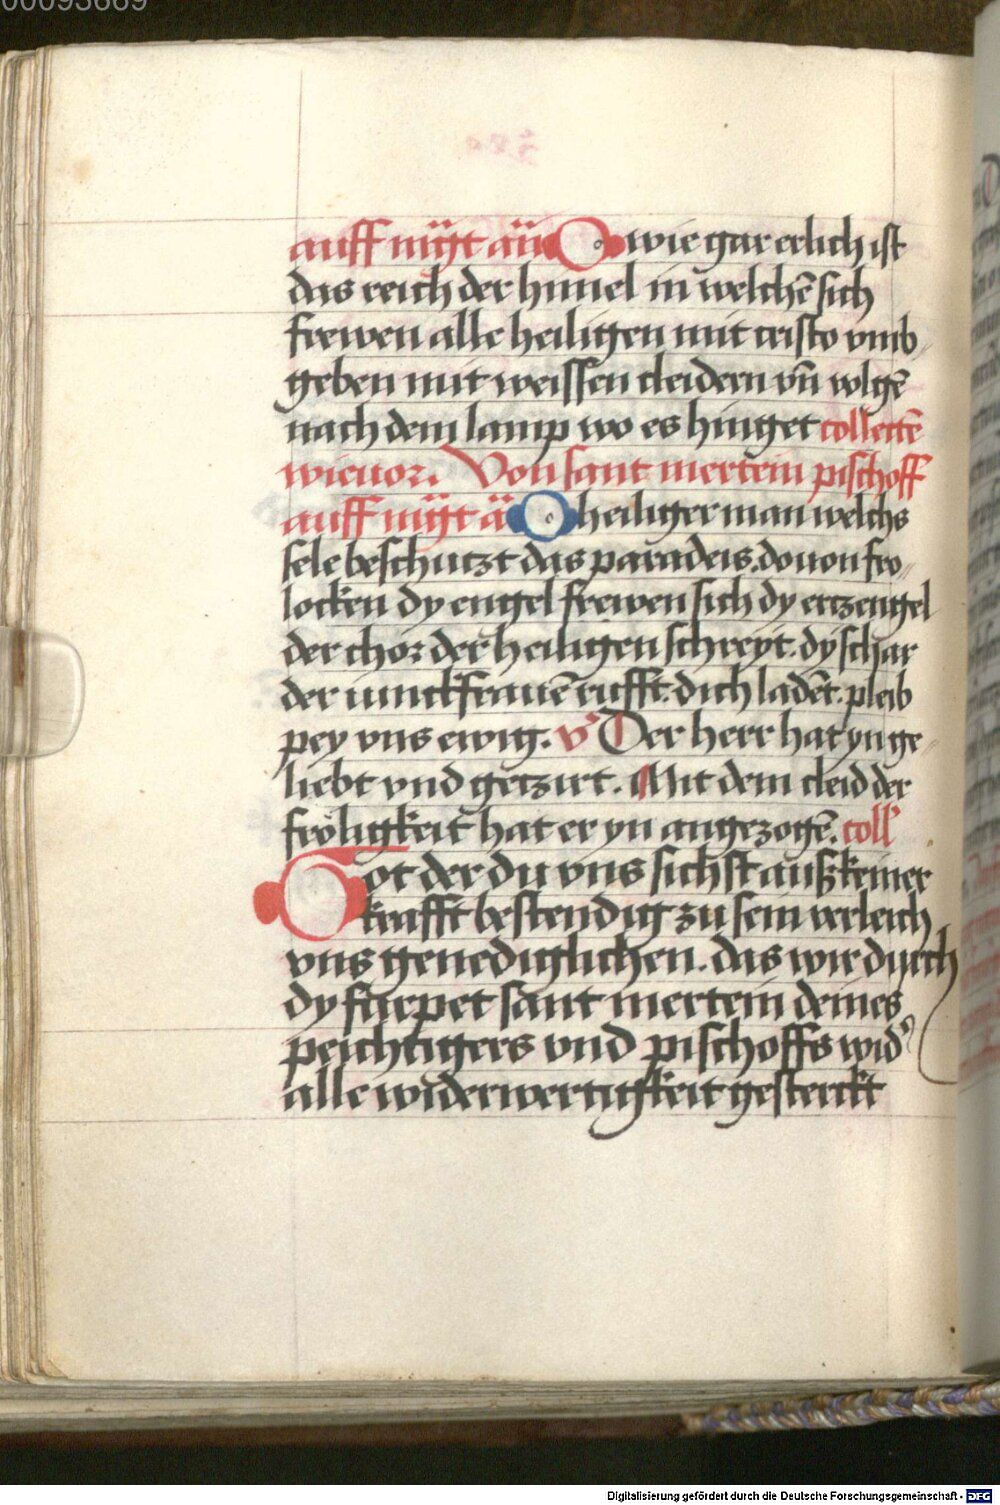 00093669
auff mӱt añ O wie gar erlich ist
das reich der himel in welchē sich
frewen alle heiligen mit cristo vmb
geben mit weissen cleidern vn̄ volgē
nach dem lamp wo es hinget collectē
wie uor. Von sant mertein pischoff
auff mӱt ä O heiliger man welchs
sele beschutzt das paradeis. douon fro
locken dy engel frewen sich dy ertzengel
der chor der heiligen schreyt. dy schar
der iunckfrauē rufft. dich ladēt. pleib
pey vns ewig. v̉ Der herr hat yn ge
liebt vnd getzirt. Mit dem cleid der
fröligkeit hat er yn angezogē. coll̉
Got der du vns sichst auß keiner
krafft bestendig zu sein verleich
vns genediglichen. das wir durch
dy furpet sant mertein deines
peichtigers vnd pischoffs wid̉
alle widerwertigkeit gesterckt
Digitalisierung gefördert durch die Deutsche Forschungsgemeinschaft - DFG